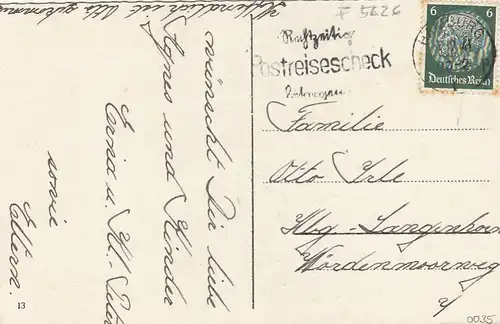 wünscht Dir liebe
Agnes und Kinder
Erna u. Kl.-Peter
sowie
Eltern.
13
F 5626
Rechtzeitig
Postreisescheck
6 6
Deutsches Reich
Familie
Otto Irle
Hbg-Langenhorn
Wördenmoorweg
0035